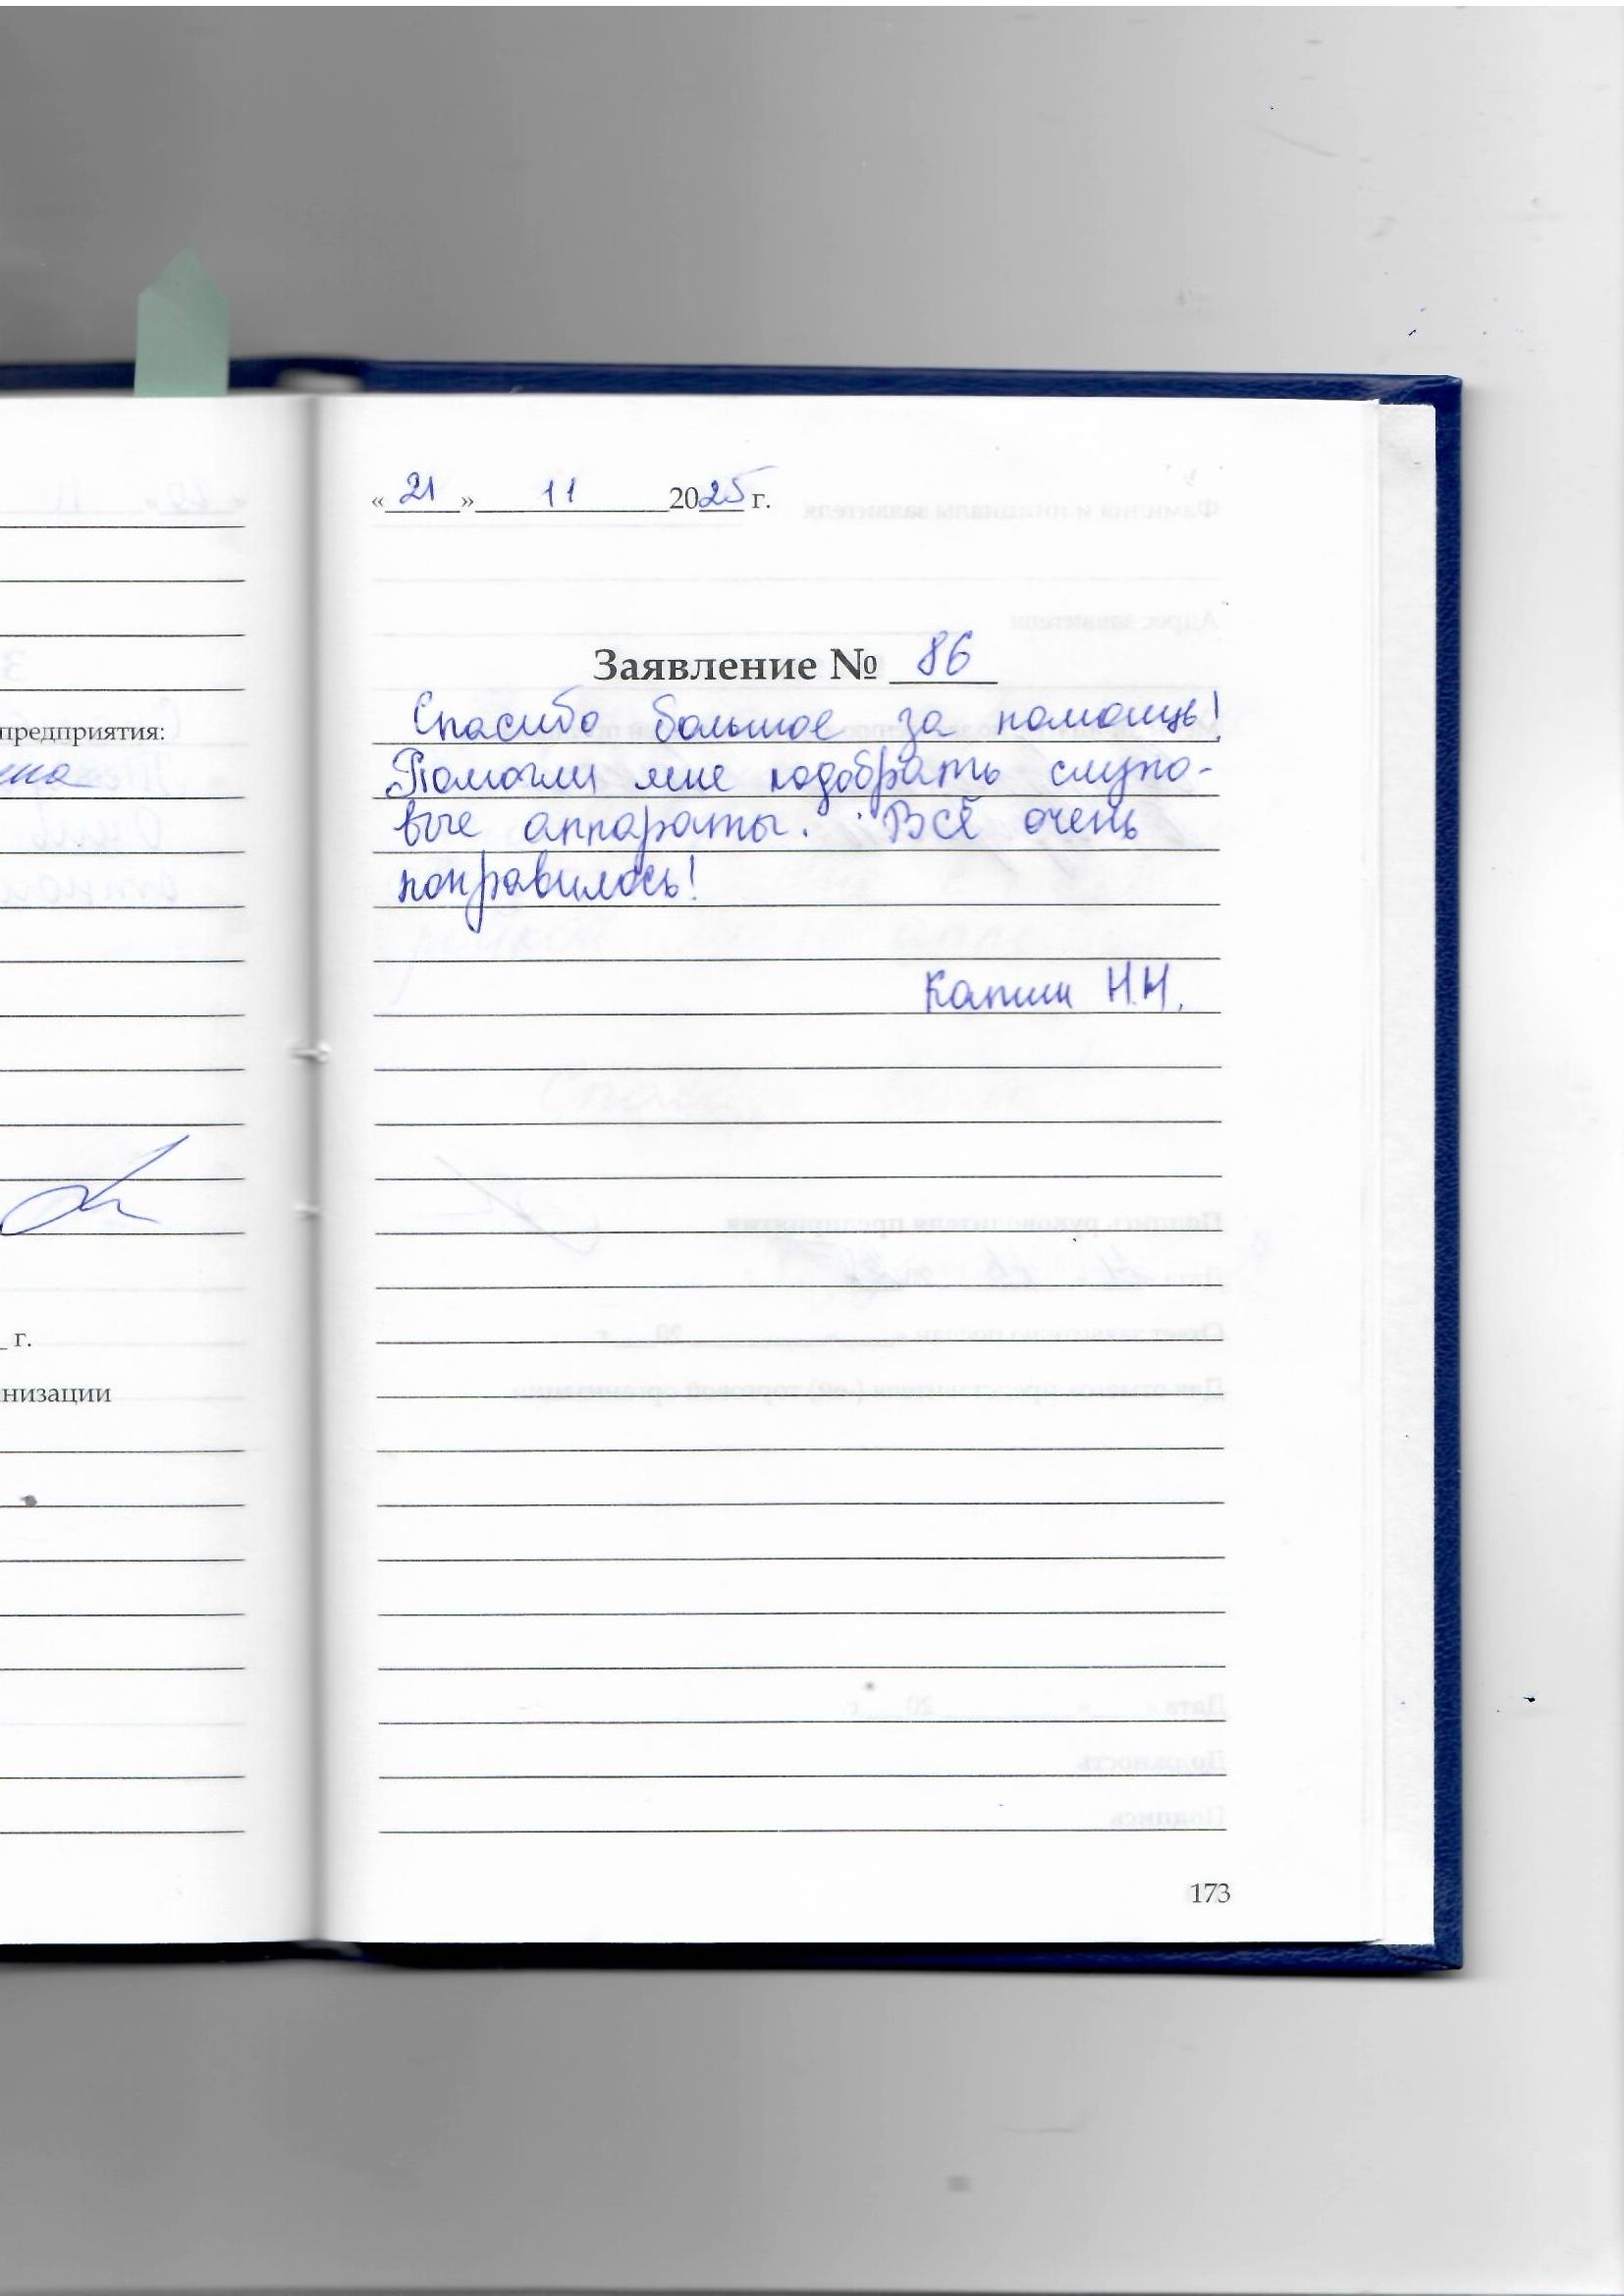 предприятия:
г.
низации
«21» 11 2025 г.
Заявление № 86
Спасибо большое за помощь!
Помогли мне подобрать слухо-
вые аппараты. Всё очень
понравилось!
Н.Н.
173